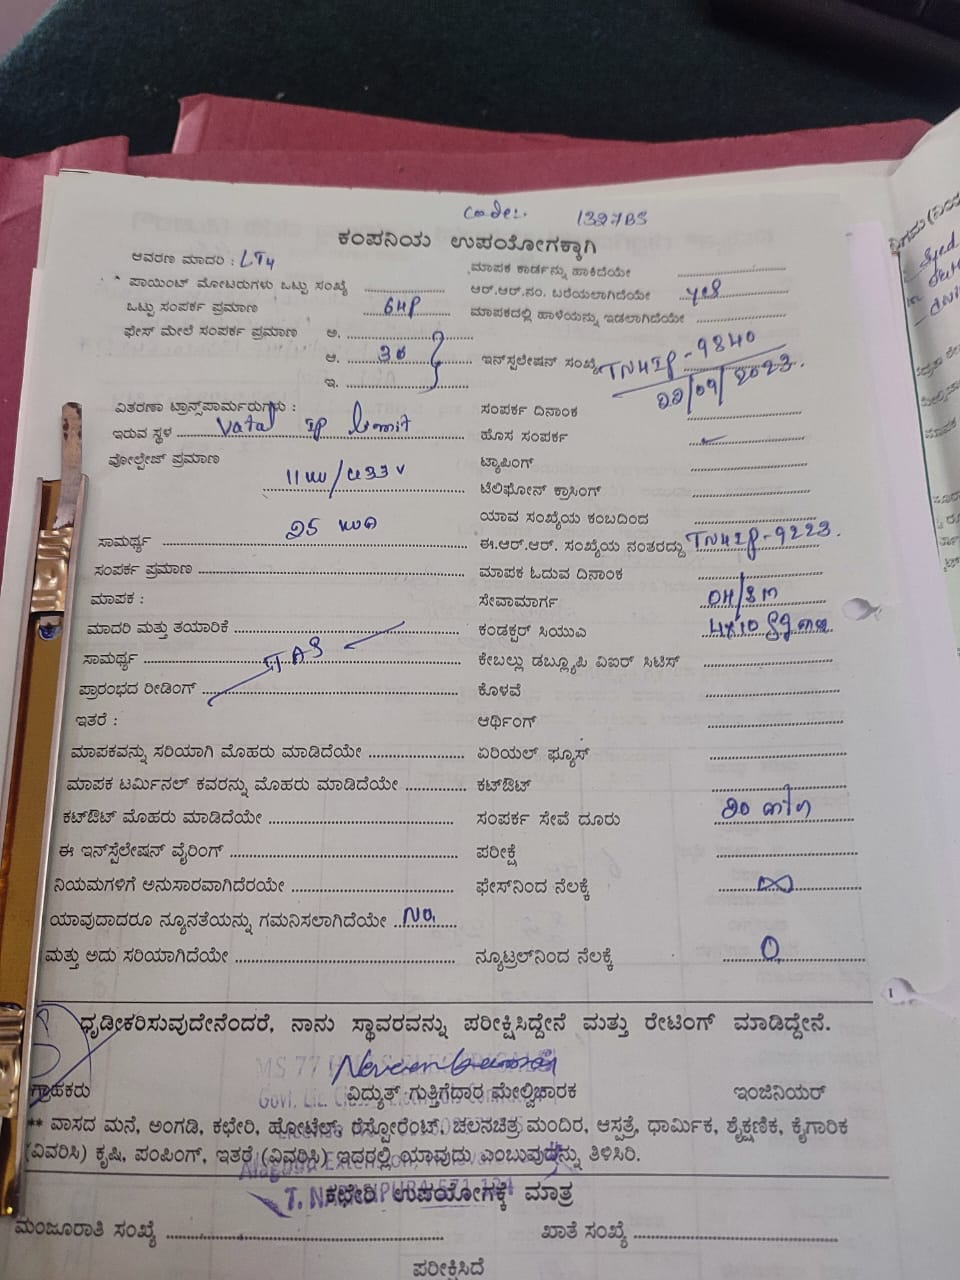 Code:. 1327BS
ಕಂಪನಿಯ ಉಪಯೋಗಕ್ಕಾಗಿ
ಆವರಣ ಮಾದರಿ : LT4
ಮಾಪಕ ಕಾರ್ಡನ್ನು ಹಾಕಿದೆಯೇ
ಪಾಯಿಂಟ್ ಮೋಟರುಗಳು ಒಟ್ಟು ಸಂಖ್ಯೆ
ಆರ್.ಆರ್.ನಂ. ಬರೆಯಲಾಗಿದೆಯೇ yes
ಒಟ್ಟು ಸಂಪರ್ಕ ಪ್ರಮಾಣ 6HP
ಮಾಪಕದಲ್ಲಿ ಹಾಳೆಯನ್ನು ಇಡಲಾಗಿದೆಯೇ
ಫೇಸ್ ಮೇಲೆ ಸಂಪರ್ಕ ಪ್ರಮಾಣ ಅ.
ಆ.
ಇನ್‌ಸ್ಪಲೇಷನ್ ಸಂಖ್ಯೆ TN4IP-9840
ಇ. 22/09/2023.
ವಿತರಣಾ ಟ್ರಾನ್ಸ್‌ಪಾರ್ಮರುಗಳು :
ಸಂಪರ್ಕ ದಿನಾಂಕ
ಇರುವ ಸ್ಥಳ Vatal IP limit
ಹೊಸ ಸಂಪರ್ಕ
ವೋಲ್ಟೇಜ್ ಪ್ರಮಾಣ
ಟ್ಯಾಪಿಂಗ್
ಟೆಲಿಫೋನ್ ಕ್ರಾಸಿಂಗ್
ಯಾವ ಸಂಖ್ಯೆಯ ಕಂಬದಿಂದ
ಸಾಮರ್ಥ್ಯ
ಈ.ಆರ್.ಆರ್. ಸಂಖ್ಯೆಯ ನಂತರದ್ದು TN4IP-9223.
ಸಂಪರ್ಕ ಪ್ರಮಾಣ
ಮಾಪಕ ಓದುವ ದಿನಾಂಕ
ಮಾಪಕ :
ಸೇವಾಮಾರ್ಗ
ಮಾದರಿ ಮತ್ತು ತಯಾರಿಕೆ
ಕಂಡಕ್ಟರ್ ಸಿಯುಎ
ಸಾಮರ್ಥ್ಯ
ಕೇಬಲ್ಲು ಡಬ್ಲ್ಯೂಪಿ ವಿಐರ್ ಸಿಟಿಸ್
ಪ್ರಾರಂಭದ ರೀಡಿಂಗ್
ಕೊಳವೆ
ಇತರೆ :
ಆರ್ಥಿಂಗ್
ಮಾಪಕವನ್ನು ಸರಿಯಾಗಿ ಮೊಹರು ಮಾಡಿದೆಯೇ
ಏರಿಯಲ್ ಫ್ಯೂಸ್
ಮಾಪಕ ಟರ್ಮಿನಲ್ ಕವರನ್ನು ಮೊಹರು ಮಾಡಿದೆಯೇ
ಕಟ್‌ಔಟ್
ಕಟ್‌ಔಟ್ ಮೊಹರು ಮಾಡಿದೆಯೇ
ಸಂಪರ್ಕ ಸೇವೆ ದೂರು
ಈ ಇನ್‌ಸ್ಪೆಲೇಷನ್ ವೈರಿಂಗ್
ಪರೀಕ್ಷೆ
ನಿಯಮಗಳಿಗೆ ಅನುಸಾರವಾಗಿದೆರಯೇ
ಫೇಸ್‌ನಿಂದ ನೆಲಕ್ಕೆ ∞
ಯಾವುದಾದರೂ ನ್ಯೂನತೆಯನ್ನು ಗಮನಿಸಲಾಗಿದೆಯೇ No,
ಮತ್ತು ಅದು ಸರಿಯಾಗಿದೆಯೇ
ನ್ಯೂಟ್ರಲ್‌ನಿಂದ ನೆಲಕ್ಕೆ 0
ಧೃಡೀಕರಿಸುವುದೇನೆಂದರೆ, ನಾನು ಸ್ಥಾವರವನ್ನು ಪರೀಕ್ಷಿಸಿದ್ದೇನೆ ಮತ್ತು ರೇಟಿಂಗ್ ಮಾಡಿದ್ದೇನೆ.
ಗ್ರಾಹಕರು ವಿದ್ಯುತ್ ಗುತ್ತಿಗೆದಾರ ಮೇಲ್ವಿಚಾರಕ ಇಂಜಿನಿಯರ್
** ವಾಸದ ಮನೆ, ಅಂಗಡಿ, ಕಛೇರಿ, ಹೋಟೆಲ್, ರೆಸ್ಟೋರೆಂಟ್, ಚಲನಚಿತ್ರ ಮಂದಿರ, ಆಸ್ಪತ್ರೆ, ಧಾರ್ಮಿಕ, ಶೈಕ್ಷಣಿಕ, ಕೈಗಾರಿಕ
(ವಿವರಿಸಿ) ಕೃಷಿ, ಪಂಪಿಂಗ್, ಇತರೆ (ವಿವರಿಸಿ) ಇದರಲ್ಲಿ ಯಾವುದು ಎಂಬುವುದನ್ನು ತಿಳಿಸಿರಿ.
ಕಛೇರಿ ಉಪಯೋಗಕ್ಕೆ ಮಾತ್ರ
ಮಂಜೂರಾತಿ ಸಂಖ್ಯೆ ಖಾತೆ ಸಂಖ್ಯೆ
ಪರೀಕ್ಷಿಸಿದೆ